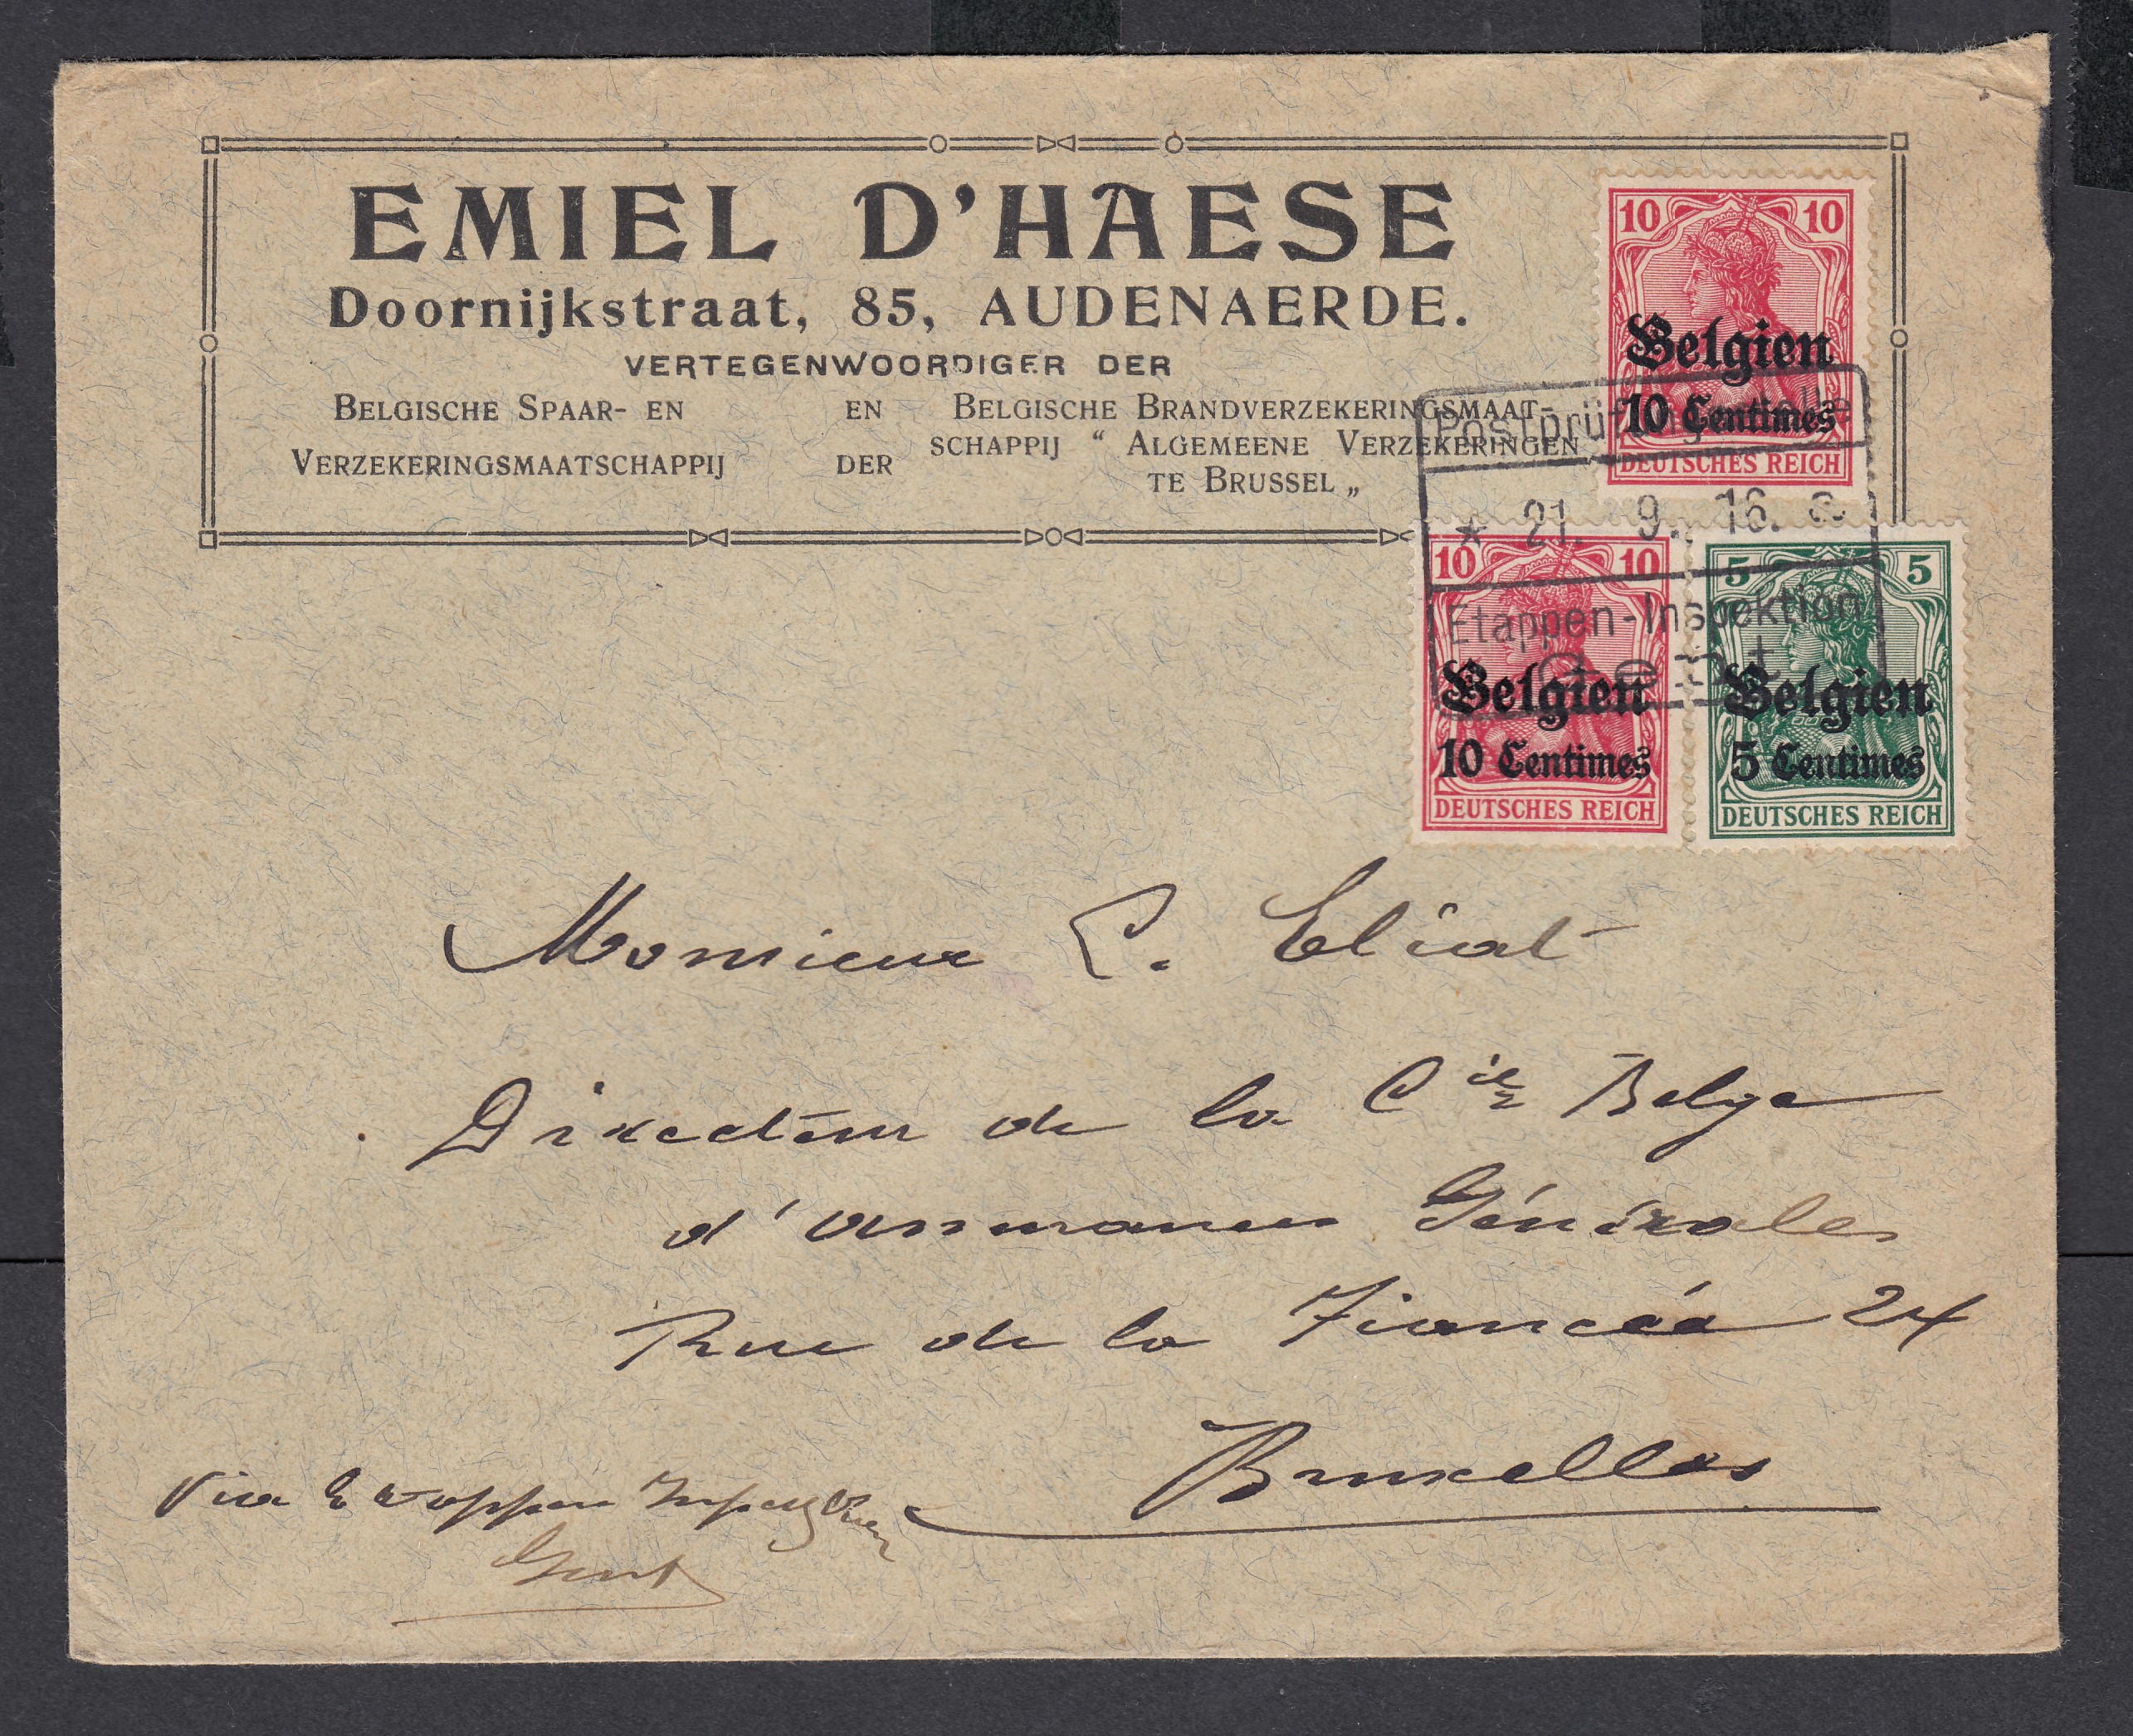 EMIEL D'HAESE
Doornijkstraat, 85, AUDENAERDE.
VERTEGENWOORDIGER DER
BELGISCHE SPAAR- EN
VERZEKERINGSMAATSCHAPPIJ
EN
DER
BELGISCHE BRANDVERZEKERINGSMAAT-
SCHAPPIJ “ ALGEMEENE VERZEKERINGEN
TE BRUSSEL „
10 10
Belgien
10 Centimes
DEUTSCHES REICH
Postprüfungsstelle
* 21. 9. 16.
Etappen-Inspektion
Gent
10 10
Belgien
10 Centimes
DEUTSCHES REICH
5 5
Belgien
5 Centimes
DEUTSCHES REICH
Monsieur C. Eliat
Directeur de la Cie Belge
d'assurances Générales
Rue de la Fiancée 24
Bruxelles
Via Etappen Inspektion
Gent